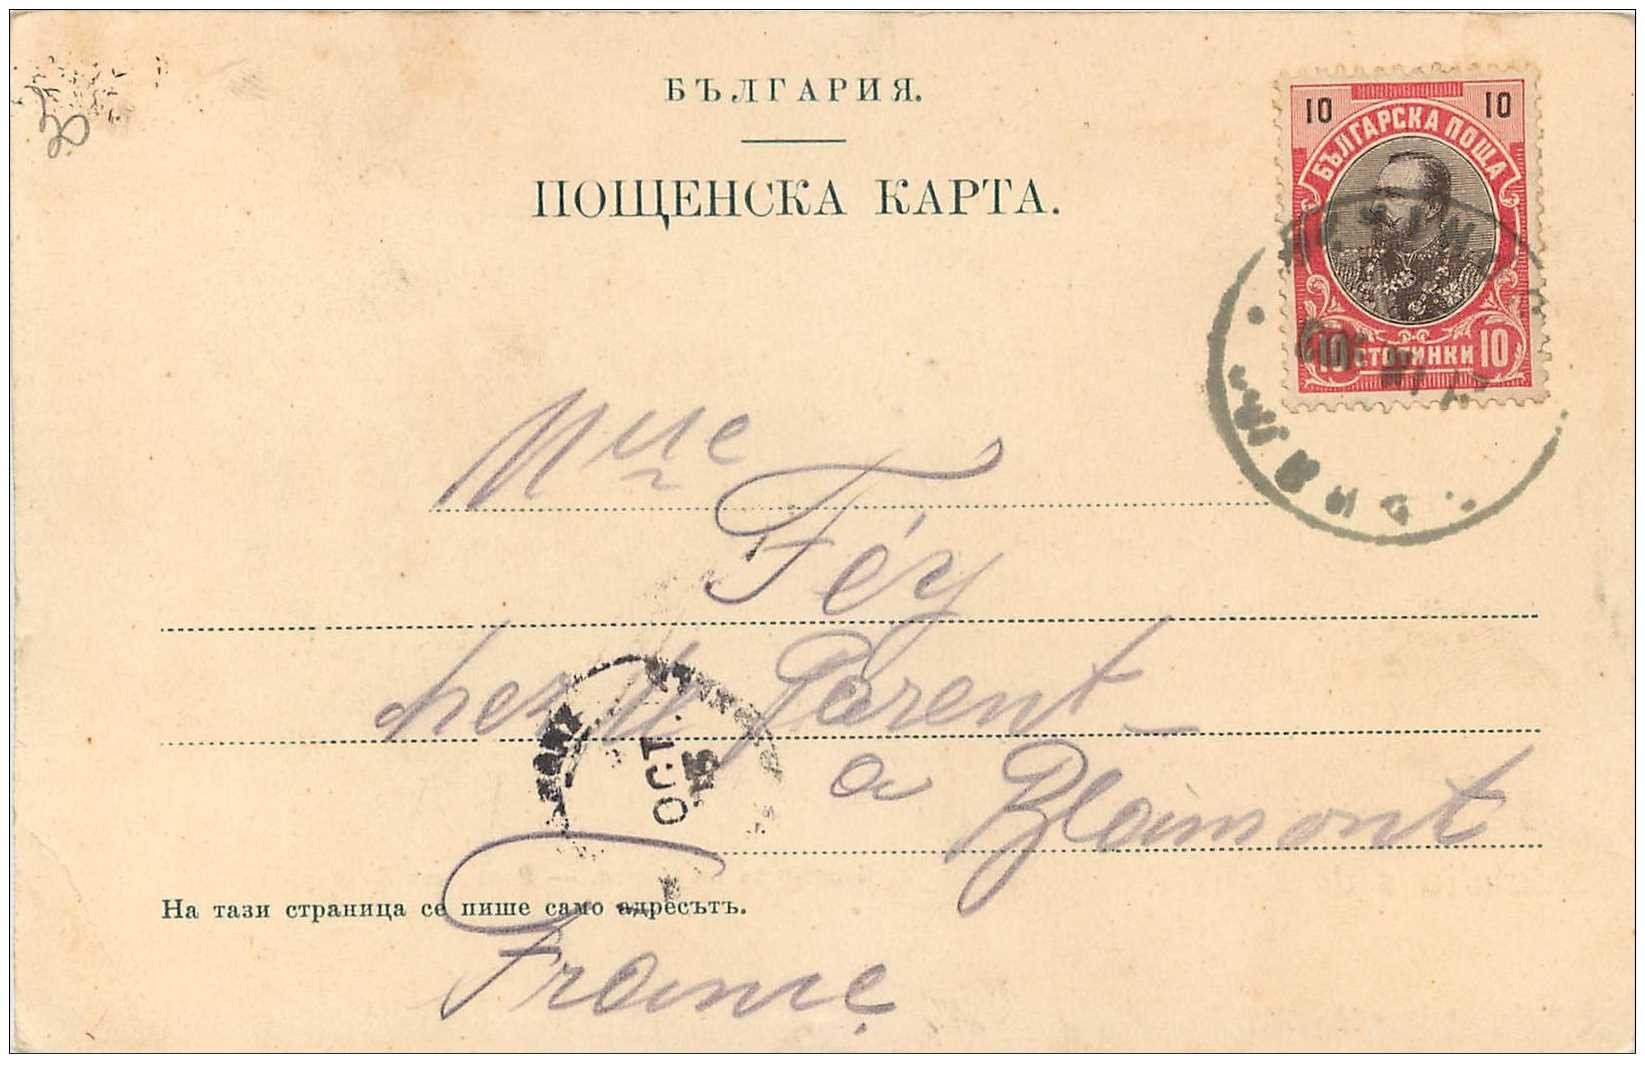 БЪЛГАРИЯ.
ПОЩЕНСКА КАРТА.
10 10
БЪЛГАРСКА ПОЩА
10 СТОТИНКИ 10
Mlle
Féy
chez M Parent
a Blamont
OCT.
На тази страница се пише само адресътъ.
France